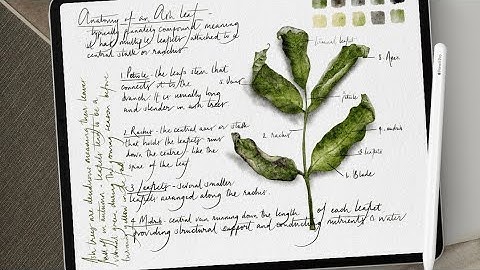 Anatomy of an Ash Leaf
typically pinnately compound meaning
it has multiple leaflets attached to a
central stalk or rachis
1. Petiole - the leaf stem that
connects it to the
branch. It is usually long
and slender in ash trees.
2. Rachis - the central axis or stalk
that holds the leaflets runs
down the centre like the
spine of the leaf
3. Leaflets - several smaller
leaflets arranged along the rachis.
4. Midrib - central vein running down the length of each leaflet
providing structural support and conducting nutrients & water
Ash trees are deciduous meaning their leaves
fall off in autumn
Terminal leaflet
8. Apex
5. Veins
petiole
2. rachis
4. midrib
3. leaflets
6. Blade